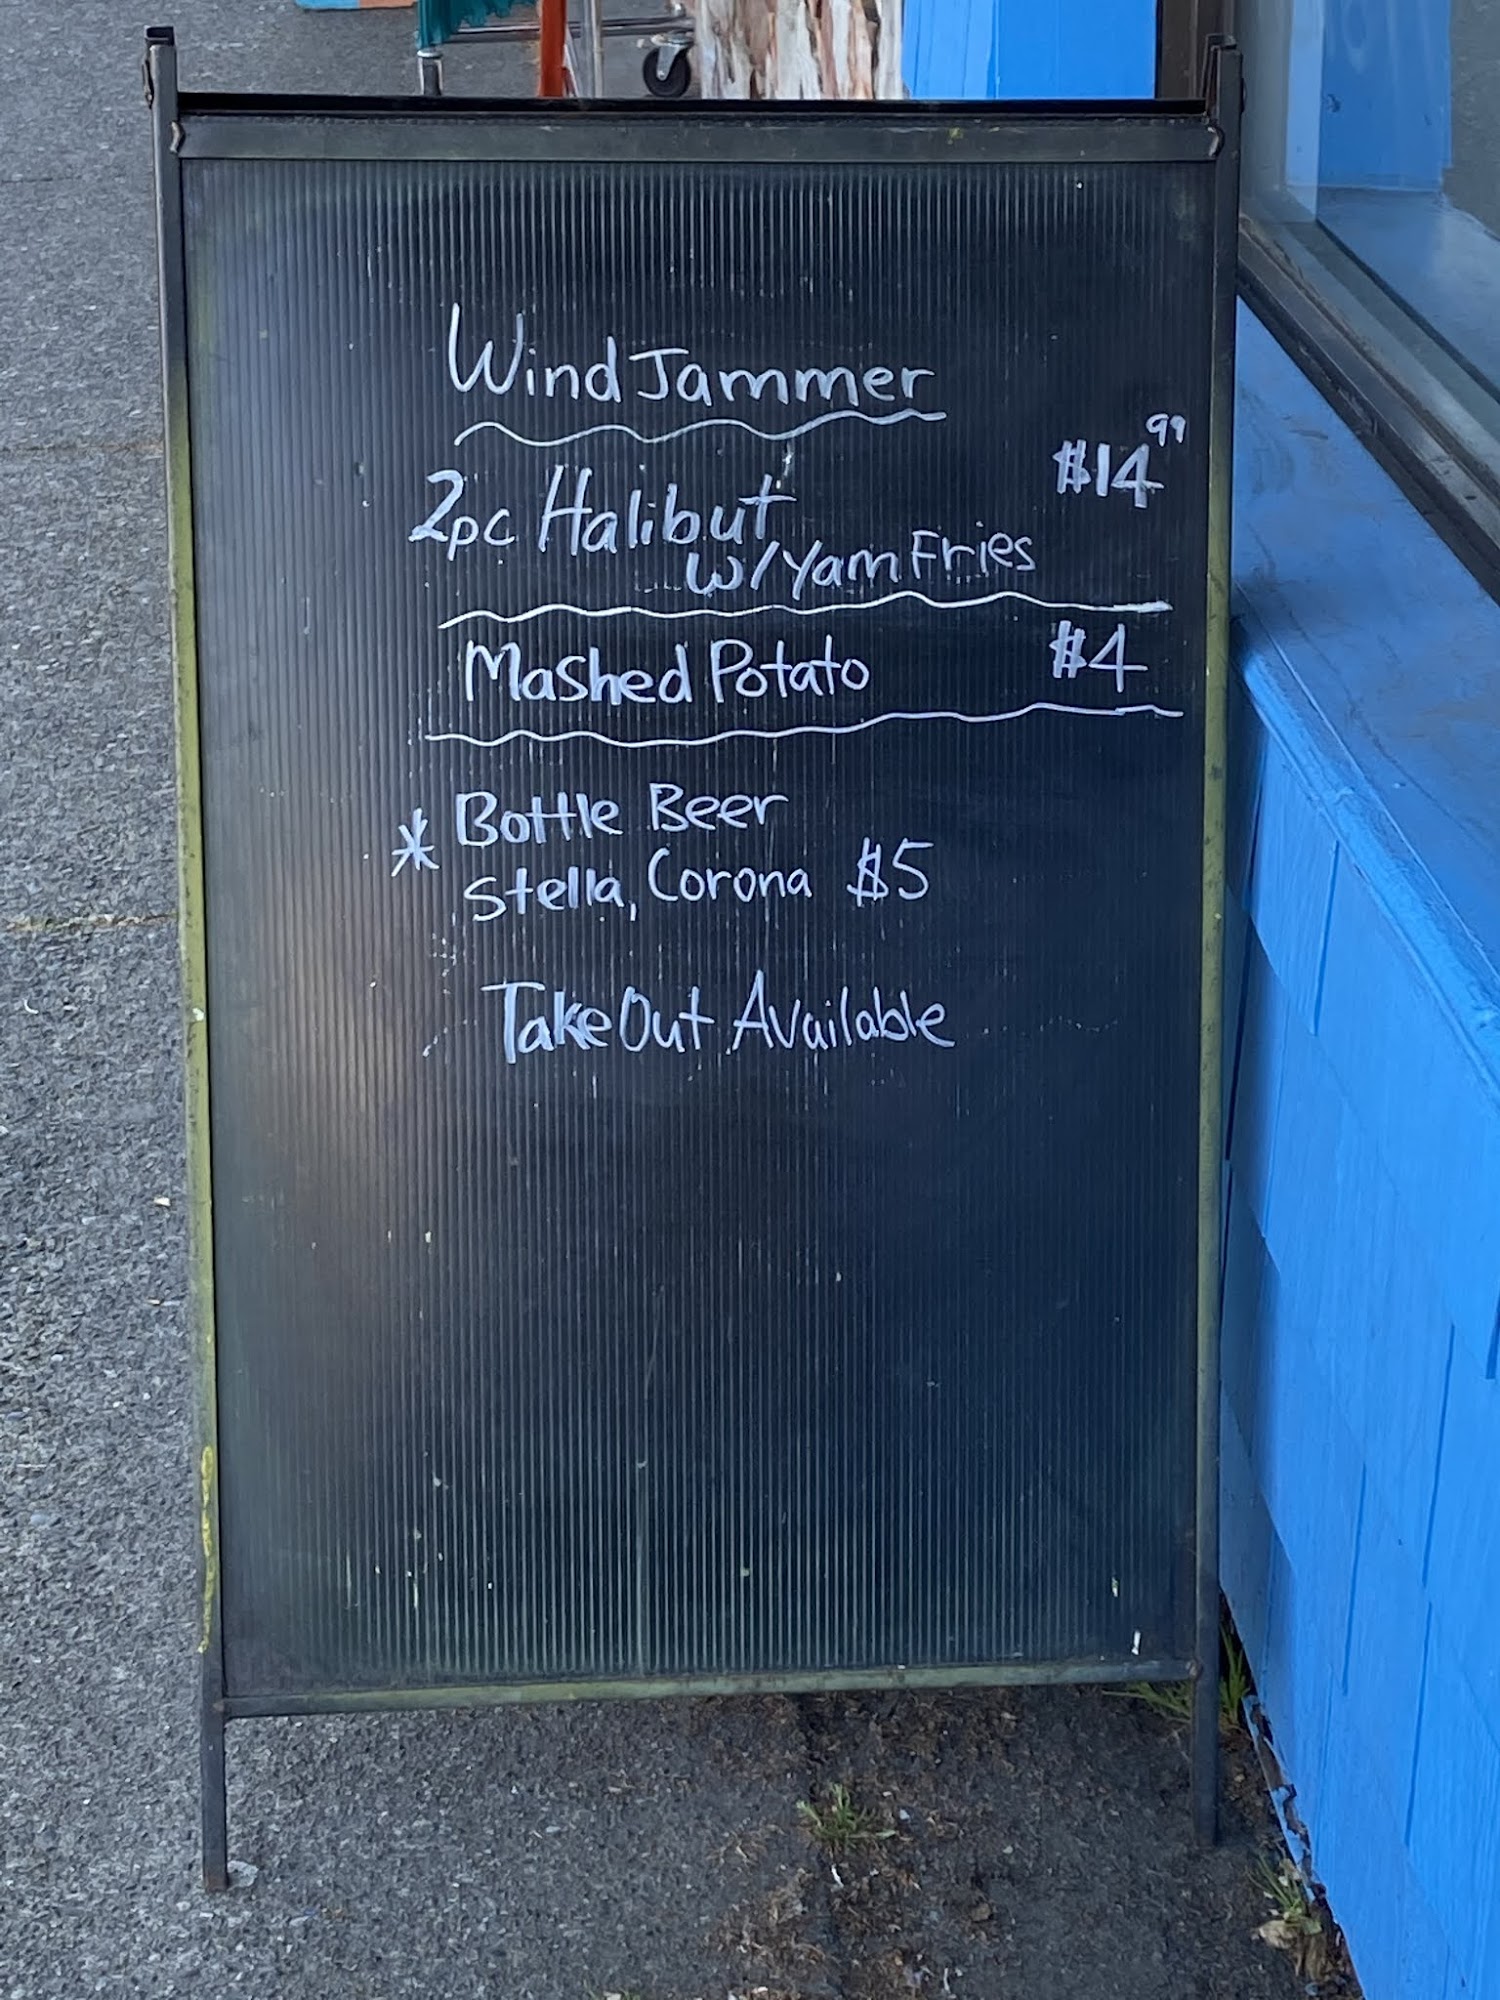 WindJammer
2pc Halibut $14.99
w/Yam Fries
Mashed Potato $4
* Bottle Beer
Stella, Corona $5
Take Out Available